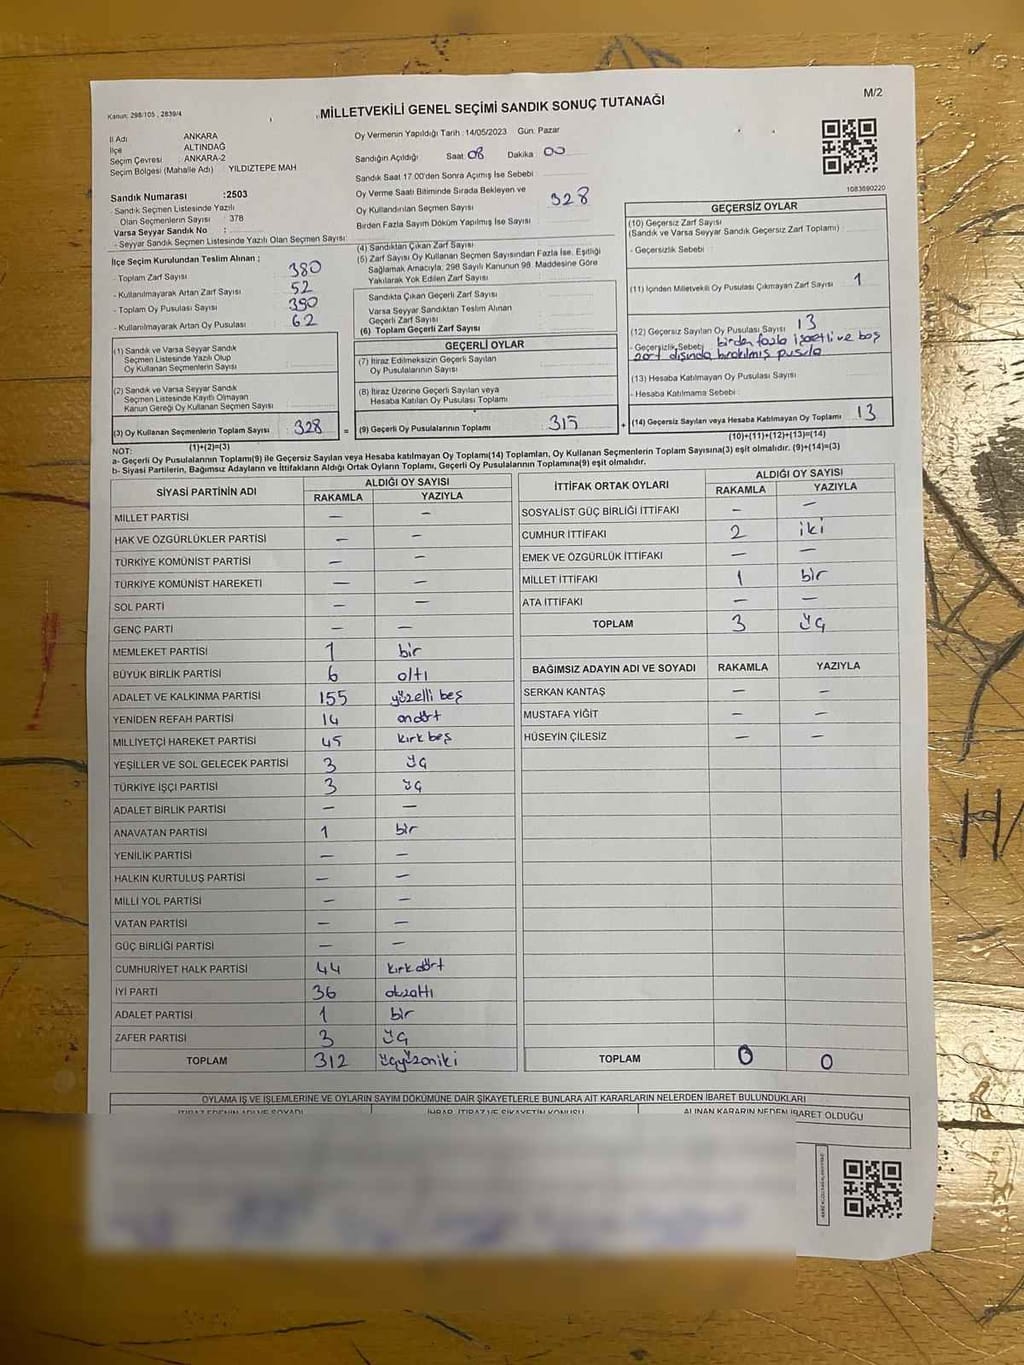 Kanun: 298/105 , 2839/4
MİLLETVEKİLİ GENEL SEÇİMİ SANDIK SONUÇ TUTANAĞI
M/2
İl Adı ANKARA
İlçe ALTINDAĞ
Seçim Çevresi ANKARA-2
Seçim Bölgesi (Mahalle Adı) YILDIZTEPE MAH
Sandık Numarası :2503
- Sandık Seçmen Listesinde Yazılı
Olan Seçmenlerin Sayısı : 378
Varsa Seyyar Sandık No :
- Seyyar Sandık Seçmen Listesinde Yazılı Olan Seçmen Sayısı:
Oy Vermenin Yapıldığı Tarih :14/05/2023 Gün: Pazar
Sandığın Açıldığı Saat 08 Dakika 00
Sandık Saat 17.00'den Sonra Açımış İse Sebebi
Oy Verme Saati Bitiminde Sırada Bekleyen ve
Oy Kullandırılan Seçmen Sayısı 328
Birden Fazla Sayım Döküm Yapılmış İse Sayısı
1083690220
İlçe Seçim Kurulundan Teslim Alınan ;
- Toplam Zarf Sayısı 380
- Kullanılmayarak Artan Zarf Sayısı 52
- Toplam Oy Pusulası Sayısı 390
- Kullanılmayarak Artan Oy Pusulası 62
(1) Sandık ve Varsa Seyyar Sandık
Seçmen Listesinde Yazılı Olup
Oy Kullanan Seçmenlerin Sayısı
(2) Sandık ve Varsa Seyyar Sandık
Seçmen Listesinde Kayıtlı Olmayan
Kanun Gereği Oy Kullanan Seçmen Sayısı
(3) Oy Kullanan Seçmenlerin Toplam Sayısı 328 =
(1)+(2)=(3)
(4) Sandıktan Çıkan Zarf Sayısı
(5) Zarf Sayısı Oy Kullanan Seçmen Sayısından Fazla İse, Eşitliği
Sağlamak Amacıyla, 298 Sayılı Kanunun 98. Maddesine Göre
Yakılarak Yok Edilen Zarf Sayısı
Sandıkta Çıkan Geçerli Zarf Sayısı
Varsa Seyyar Sandıktan Teslim Alınan
Geçerli Zarf Sayısı
(6) Toplam Geçerli Zarf Sayısı
GEÇERLİ OYLAR
(7) İtiraz Edilmeksizin Geçerli Sayılan
Oy Pusulasının Sayısı
(8) İtiraz Üzerine Geçerli Sayılan veya
Hesaba Katılan Oy Pusulası Toplamı
(9) Geçerli Oy Pusulalarının Toplamı 315 +
GEÇERSİZ OYLAR
(10) Geçersiz Zarf Sayısı
(Sandık ve Varsa Seyyar Sandık Geçersiz Zarf Toplamı)
- Geçersizlik Sebebi
(11) İçinden Milletvekili Oy Pusulası Çıkmayan Zarf Sayısı 1
(12) Geçersiz Sayılan Oy Pusulası Sayısı 13
- Geçersizlik Sebebi birden fazla işaretli ve boş
zarf dışında bırakılmış pusula
(13) Hesaba Katılmayan Oy Pusulası Sayısı
- Hesaba Katılmama Sebebi
(14) Geçersiz Sayılan veya Hesaba Katılmayan Oy Toplamı 13
(10)+(11)+(12)+(13)=(14)
NOT:
a- Geçerli Oy Pusulalarının Toplamı(9) ile Geçersiz Sayılan veya Hesaba katılmayan Oy Toplamı(14) Toplamları, Oy Kullanan Seçmenlerin Toplam Sayısına(3) eşit olmalıdır. (9)+(14)=(3)
b- Siyasi Partilerin, Bağımsız Adayların ve İttifakların Aldığı Ortak Oyların Toplamı, Geçerli Oy Pusulalarının Toplamına(9) eşit olmalıdır.
SİYASİ PARTİNİN ADI ALDIĞI OY SAYISI
RAKAMLA YAZIYLA
MİLLET PARTİSİ – –
HAK VE ÖZGÜRLÜKLER PARTİSİ – –
TÜRKİYE KOMÜNİST PARTİSİ – –
TÜRKİYE KOMÜNİST HAREKETİ – –
SOL PARTİ – –
GENÇ PARTİ – –
MEMLEKET PARTİSİ 1 bir
BÜYÜK BİRLİK PARTİSİ 6 altı
ADALET VE KALKINMA PARTİSİ 155 yüzelli beş
YENİDEN REFAH PARTİSİ 14 ondört
MİLLİYETÇİ HAREKET PARTİSİ 45 kırk beş
YEŞİLLER VE SOL GELECEK PARTİSİ 3 üç
TÜRKİYE İŞÇİ PARTİSİ 3 üç
ADALET BİRLİK PARTİSİ – –
ANAVATAN PARTİSİ 1 bir
YENİLİK PARTİSİ – –
HALKIN KURTULUŞ PARTİSİ – –
MİLLİ YOL PARTİSİ – –
VATAN PARTİSİ – –
GÜÇ BİRLİĞİ PARTİSİ – –
CUMHURİYET HALK PARTİSİ 44 kırkdört
İYİ PARTİ 36 otuzaltı
ADALET PARTİSİ 1 bir
ZAFER PARTİSİ 3 üç
TOPLAM 312 üçyüzoniki
İTTİFAK ORTAK OYLARI ALDIĞI OY SAYISI
RAKAMLA YAZIYLA
SOSYALİST GÜÇ BİRLİĞİ İTTİFAKI – –
CUMHUR İTTİFAKI 2 iki
EMEK VE ÖZGÜRLÜK İTTİFAKI – –
MİLLET İTTİFAKI 1 bir
ATA İTTİFAKI – –
TOPLAM 3 üç
BAĞIMSIZ ADAYIN ADI VE SOYADI RAKAMLA YAZIYLA
SERKAN KANTAŞ – –
MUSTAFA YİĞİT – –
HÜSEYİN ÇİLESİZ – –
TOPLAM 0 0
OYLAMA İŞ VE İŞLEMLERİNE VE OYLARIN SAYIM DÖKÜMÜNE DAİR ŞİKAYETLERLE BUNLARA AİT KARARLARIN NELERDEN İBARET BULUNDUKLARI
İTİRAZ EDENİN ADI VE SOYADI İHBAR, İTİRAZ VE ŞİKAYETİN KONUSU ALINAN KARARIN NEDEN İBARET OLDUĞU